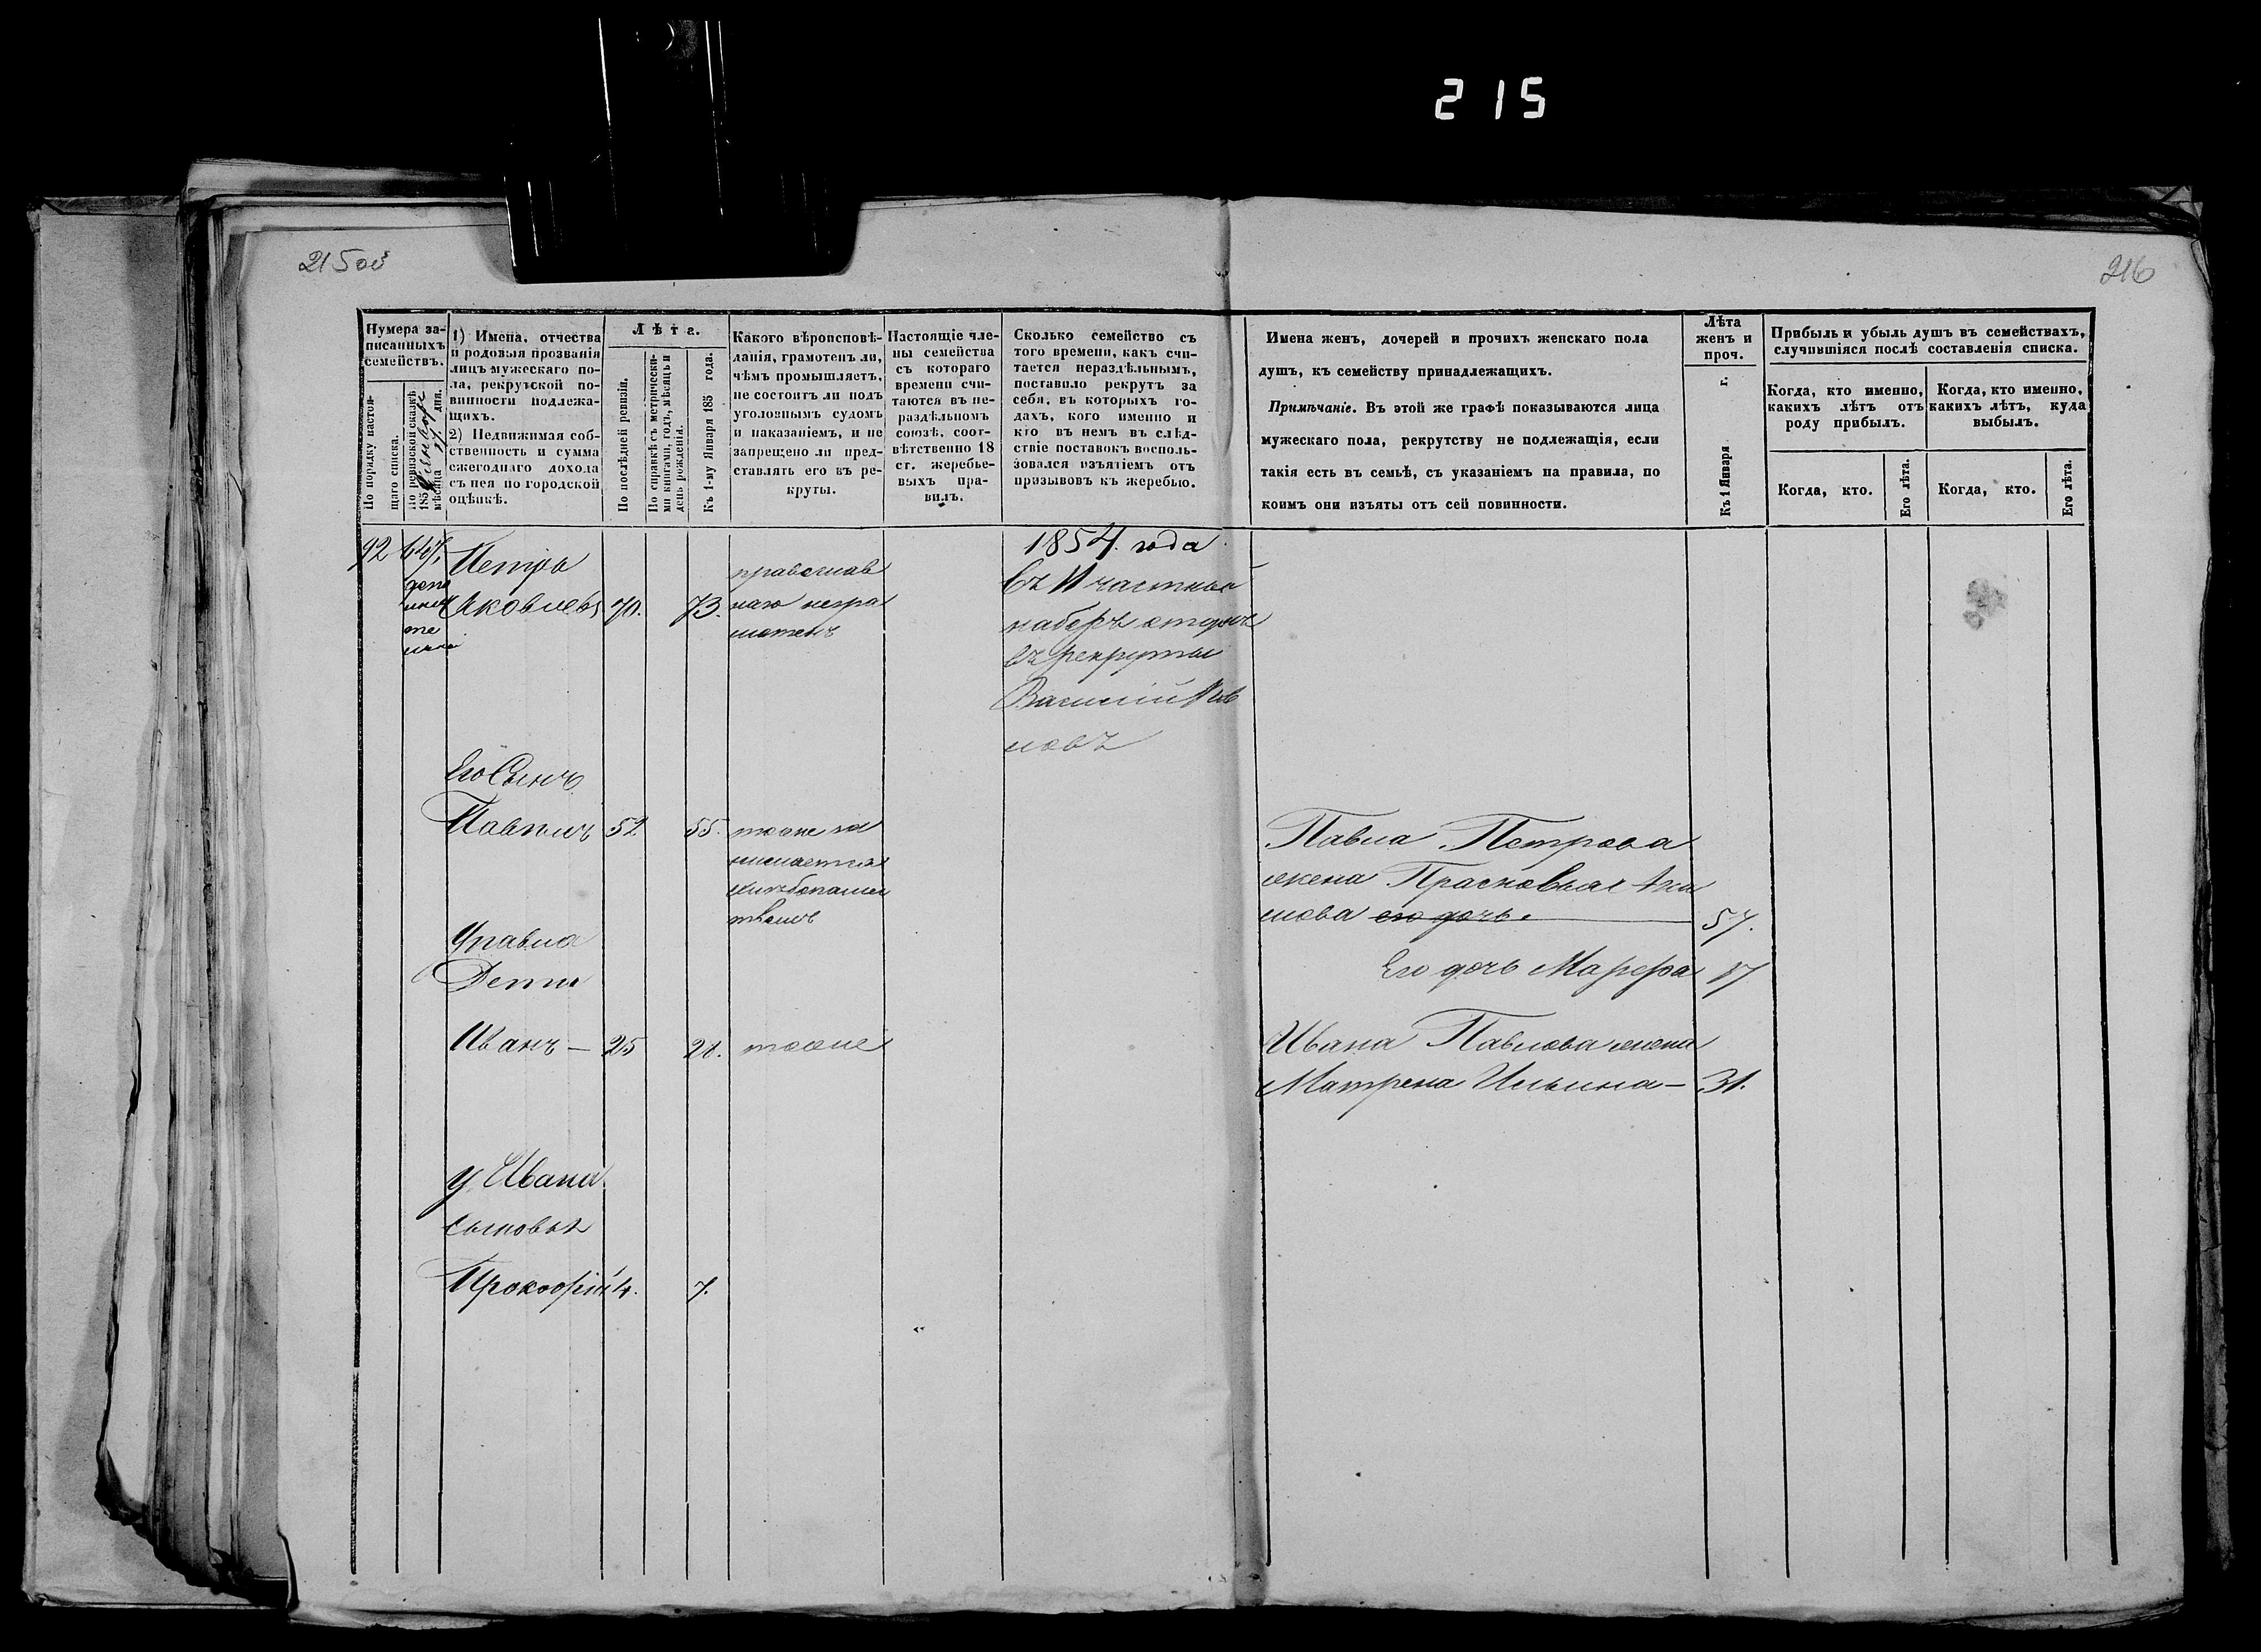 215
215 об
216
Нумера записанныхъ семействъ.
По порядку настоящаго списка.
По ревизской сказкѣ 185 мѣсяца дня.
1) Имена, отчества и родовыя прозванія лицъ мужескаго пола, рекрутской повинности подлежащихъ.
2) Недвижимая собственность и сумма ежегоднаго дохода съ нея по городской оцѣнкѣ.
Лѣта.
По послѣдней ревизіи.
По справкѣ съ метрическими книгами, годъ, мѣсяцъ и день рожденія.
Къ 1-му Января 185 года.
Какого вѣроисповѣданія, грамотенъ ли, чѣмъ промышляетъ, не состоитъ ли подъ уголовнымъ судомъ и наказаніемъ, и не запрещено ли представлять его въ рекруты.
Настоящіе члены семейства съ котораго времени считаются въ нераздѣльномъ союзѣ, соотвѣтственно 18 ст. жеребьевыхъ правилъ.
Сколько семейство съ того времени, какъ считается нераздѣльнымъ, поставило рекрутъ за себя, въ которыхъ годахъ, кого именно и кто въ немъ въ слѣдствіе поставокъ воспользовался изъятіемъ отъ призывовъ къ жеребью.
Имена женъ, дочерей и прочихъ женскаго пола
душъ, къ семейству принадлежащихъ.
Примѣчаніе. Въ этой же графѣ показываются лица
мужескаго пола, рекрутству не подлежащія, если
такія есть въ семьѣ, съ указаніемъ на правила, по
коимъ они изъяты отъ сей повинности.
Лѣта женъ и проч.
Къ 1 Января г.
Прибыль и убыль душъ въ семействахъ,
случившіяся послѣ составленія списка.
Когда, кто именно, какихъ лѣтъ отъ роду прибылъ.
Когда, кто именно, какихъ лѣтъ, куда выбылъ.
Когда, кто.
Его лѣта.
Когда, кто.
Его лѣта.
92
Петръ
Яковлевъ 70. 73.
православ
наго негра
мотенъ
1854. года
въ частный
наборъ
въ рекруты
Василій Пав
ловъ
Его Сынъ
Павелъ 52 55. тоже за
нимается
хлебопаше
ствомъ
Павла Петрова
жена Прасковья
его дочь 57.
У Павла
Дети
Его дочь Марфа 17
Иванъ — 25 28. тоже
Ивана Павлова жена
Матрена Ильина — 31.
у Ивана
сыновья
Прокофій 4. 7.